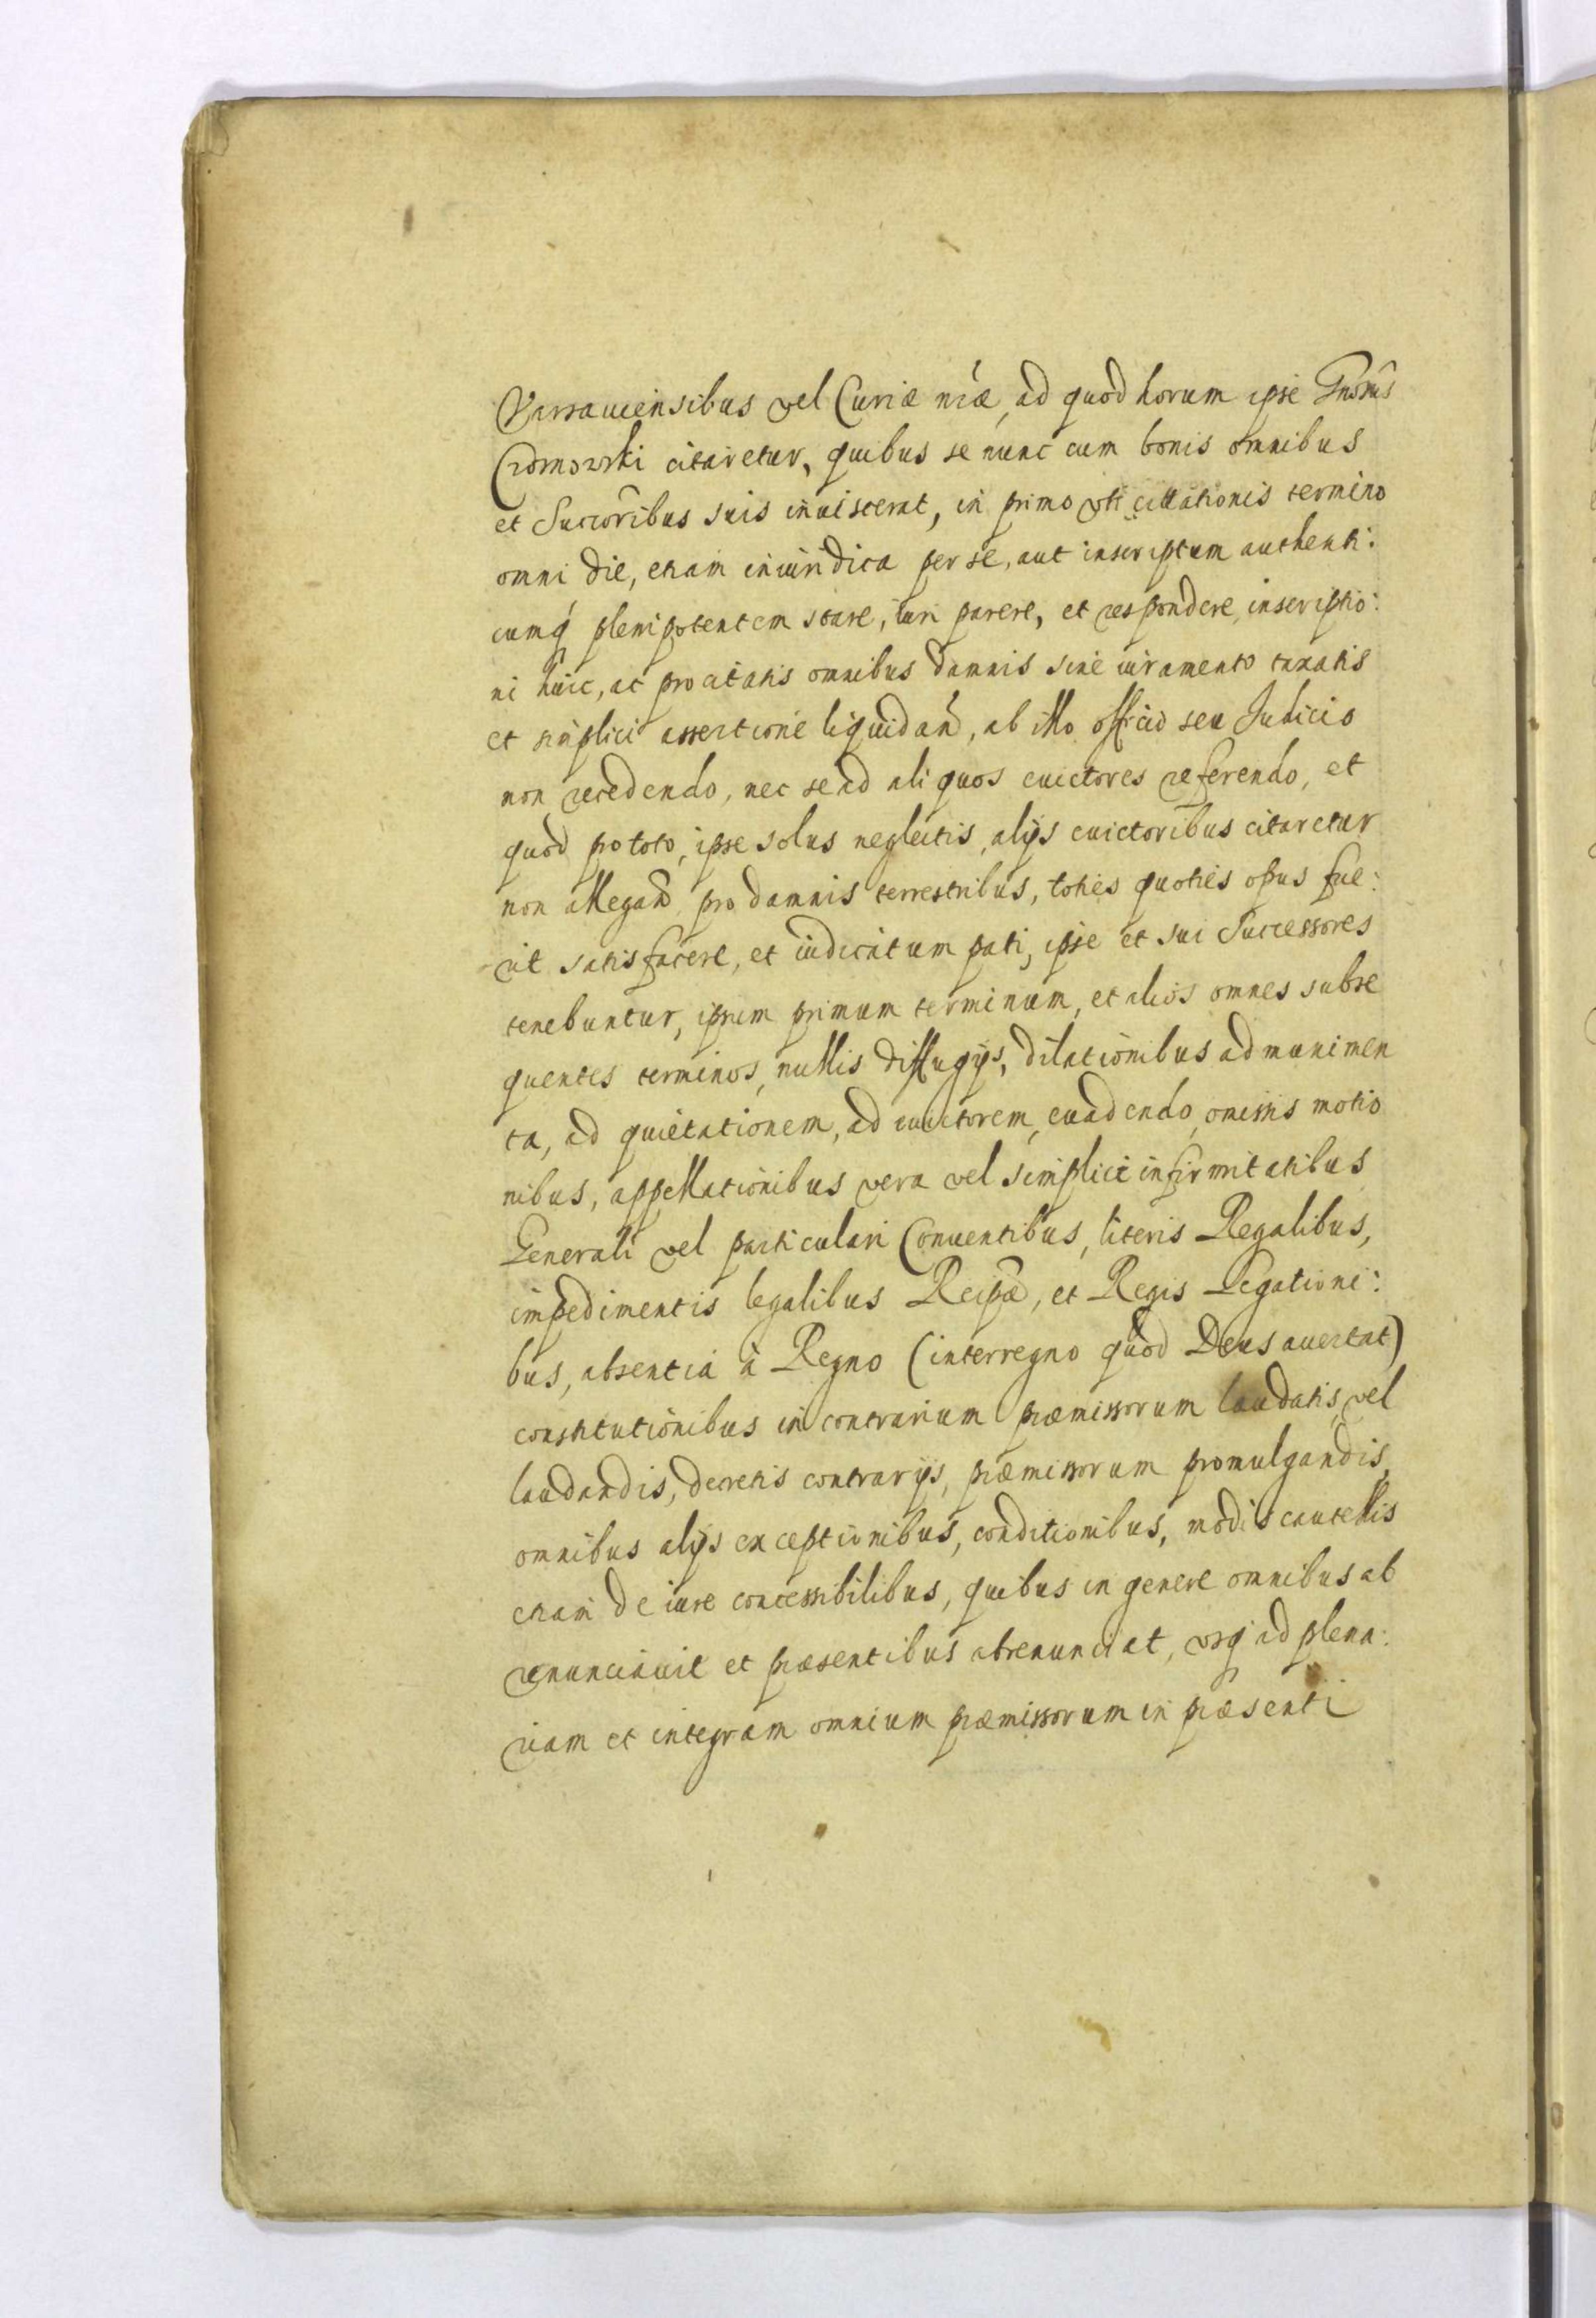 Varsauiensibus vel Curiæ nr̃æ, ad quod horum ipse Gnosus
Czosnowski citaretur, quibus se nunc cum bonis omnibus
et Succoribus suis inuiscerat, in primo citationis termino
omni die, etiam iniuridica per se, aut inscriptum authenti:
cumq́ plenipotentem stare, iuri parere, et respondere, inscriptio:
ni huic, ac pro citatis omnibus damnis sine iuramento taxatis
et simplici assertione liquidañ, ab illo officio seu Iudicio
non recedendo, nec se ad aliquos euictores referendo, et
quod pro toto, ipse solus neglectis, alijs euictoribus citaretur
non allegañ pro damnis terrestribus, toties quoties opus fue:
rit satisfacere, et iudicatum pati, ipse et sui Successores
tenebuntur, ipsum primum terminum, et alios omnes subse
quentes terminos, nullis diffugijs, dilationibus ad munimen
ta, ad quietationem, ad euictorem, euadendo, omissis motio
nibus, appellationibus vera vel simplici infirmitatibus
Generali vel particulari Conuentibus, literis Regalibus,
impedimentis legalibus Reipæ, et Regis Legationi:
bus, absentia à Regno (interregno quod Deus auertat)
constitutionibus in contrarium præmissorum laudatis, vel
laudandis, decretis contrarijs, præmissorum promulgandis,
omnibus alijs exceptionibus, conditionibus, modis cautellis
etiam de iure concessibilibus, quibus in genere omnibus ab
renunciauit et præsentibus abrenunciat, vsq́ ad plena:
riam et integram omnium præmissorum in præsenti